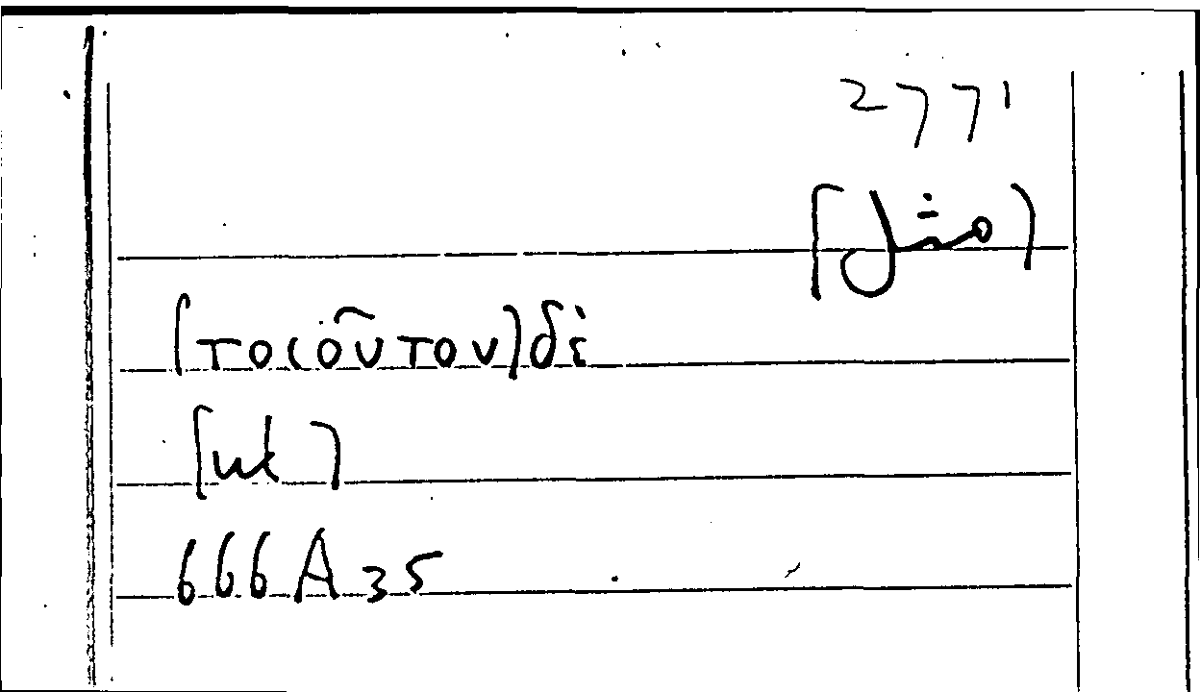 2771
[مثل]
[τοιοῦτον] δὲ
[ut]
666A35